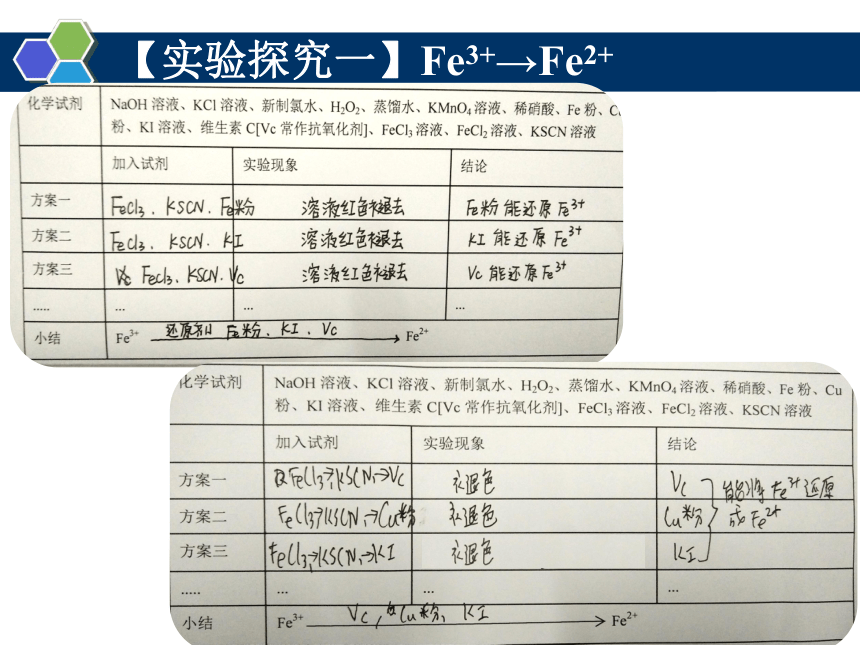 【实验探究一】Fe³⁺→Fe²⁺
化学试剂 NaOH 溶液、KCl 溶液、新制氯水、H₂O₂、蒸馏水、KMnO₄溶液、稀硝酸、Fe 粉、Cu
粉、KI 溶液、维生素 C[Vc 常作抗氧化剂]、FeCl₃溶液、FeCl₂溶液、KSCN 溶液
加入试剂 实验现象 结论
方案一 FeCl₃、KSCN、Fe粉 溶液红色褪去 Fe粉能还原Fe³⁺
方案二 FeCl₃、KSCN、KI 溶液红色褪去 KI能还原Fe³⁺
方案三 FeCl₃、KSCN、Vc 溶液红色褪去 Vc能还原Fe³⁺
..... ... ... ...
小结 Fe³⁺ 还原剂 Fe粉、KI、Vc Fe²⁺
化学试剂 NaOH 溶液、KCl 溶液、新制氯水、H₂O₂、蒸馏水、KMnO₄溶液、稀硝酸、Fe 粉、Cu
粉、KI 溶液、维生素 C[Vc 常作抗氧化剂]、FeCl₃溶液、FeCl₂溶液、KSCN 溶液
加入试剂 实验现象 结论
方案一 FeCl₃→KSCN→Vc 退色 Vc 能将Fe³⁺还原
方案二 FeCl₃→KSCN→Cu粉 退色 Cu粉 成Fe²⁺
方案三 FeCl₃→KSCN→KI 退色 KI
..... ... ... ...
小结 Fe³⁺ Vc, Cu粉, KI → Fe²⁺